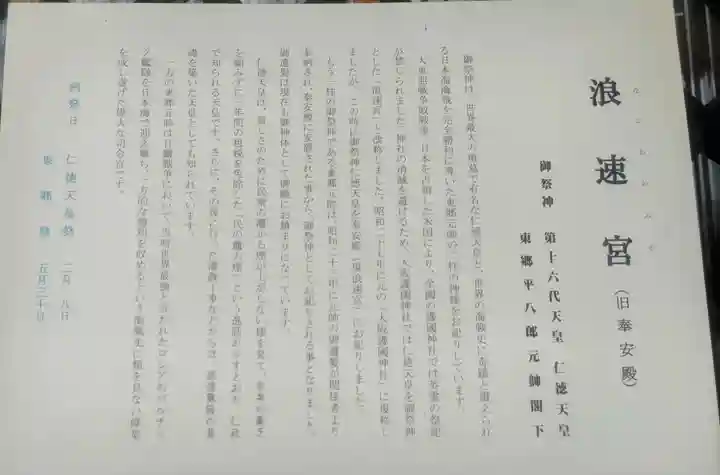 なにわのみや
浪速宮(旧奉安殿)
御祭神 第十六代天皇 仁徳天皇
東郷平八郎元帥閣下
御祭神は、世界最大の墳墓で有名な仁徳天皇と、世界の海戦史に奇蹟と讃えられ
る日本海海戦を完全勝利に導いた東郷元帥の二柱の神様をお祀りしています。
大東亜戦争敗戦後、日本を占領した米国により、全国の護國神社では英霊の祭祀
が禁じられました。神社の消滅を避けるため、大阪護國神社では仁徳天皇を御祭神
とした「浪速宮」と改称しました。昭和二十七年に元の「大阪護國神社」に復称し
ましたが、この時に御祭神仁徳天皇を奉安殿(現浪速宮)にお祀りしました。
もう一柱の御祭神である東郷元帥は、昭和三十一年に元帥の御遺髪が関係者より
奉納され、奉安殿に安置された事から、御祭神としてお祀りされる事となりました。
御遺髪は現在も御神体として御殿にお鎮まりになっています。
仁徳天皇は、貧しさのために民家の竈から煙が上がらない様を見て、
を顧みずに三年間の租税を免除した「民の竈の煙」という逸話が示すとおり、仁政
で知られる天皇です。さらに、その後に行った
礎を築いた天皇としても知られています。
一方の東郷元帥は日露戦争において、当時世界最強と言われたロシアのバルチッ
ク艦隊を日本海で迎え撃ち、一方的な勝利を収めるという海戦史に類を見ない偉業
を成し遂げた偉大な司令官です。
例祭日 仁徳天皇祭 二月八日
東郷祭 五月三十日